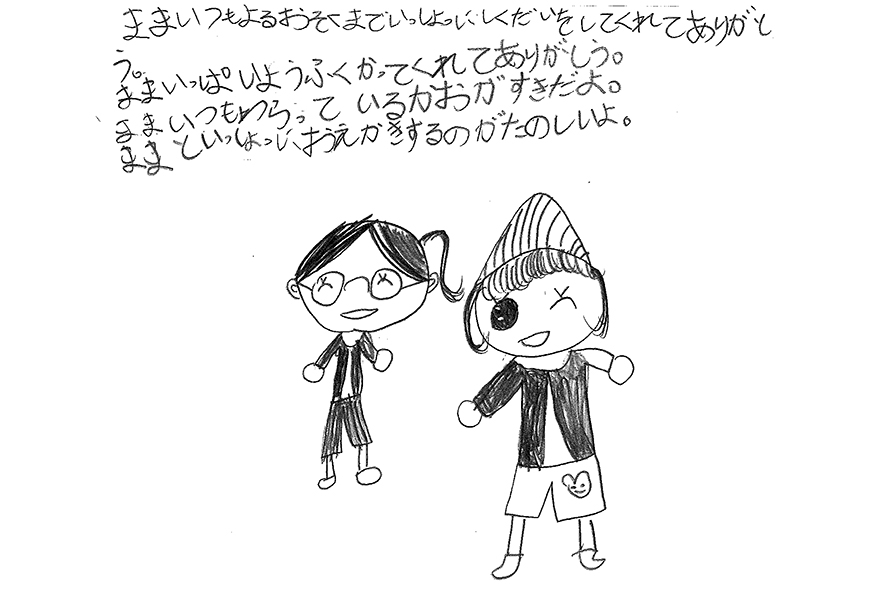 ままいつもよるおそくまでいっしょにしくだいをしてくれてありがと
う。
ままいっぱいようふくかってくれてありがとう。
ままいつもわらっているかおがすきだよ。
ままといっしょにおえかきするのがたのしいよ。